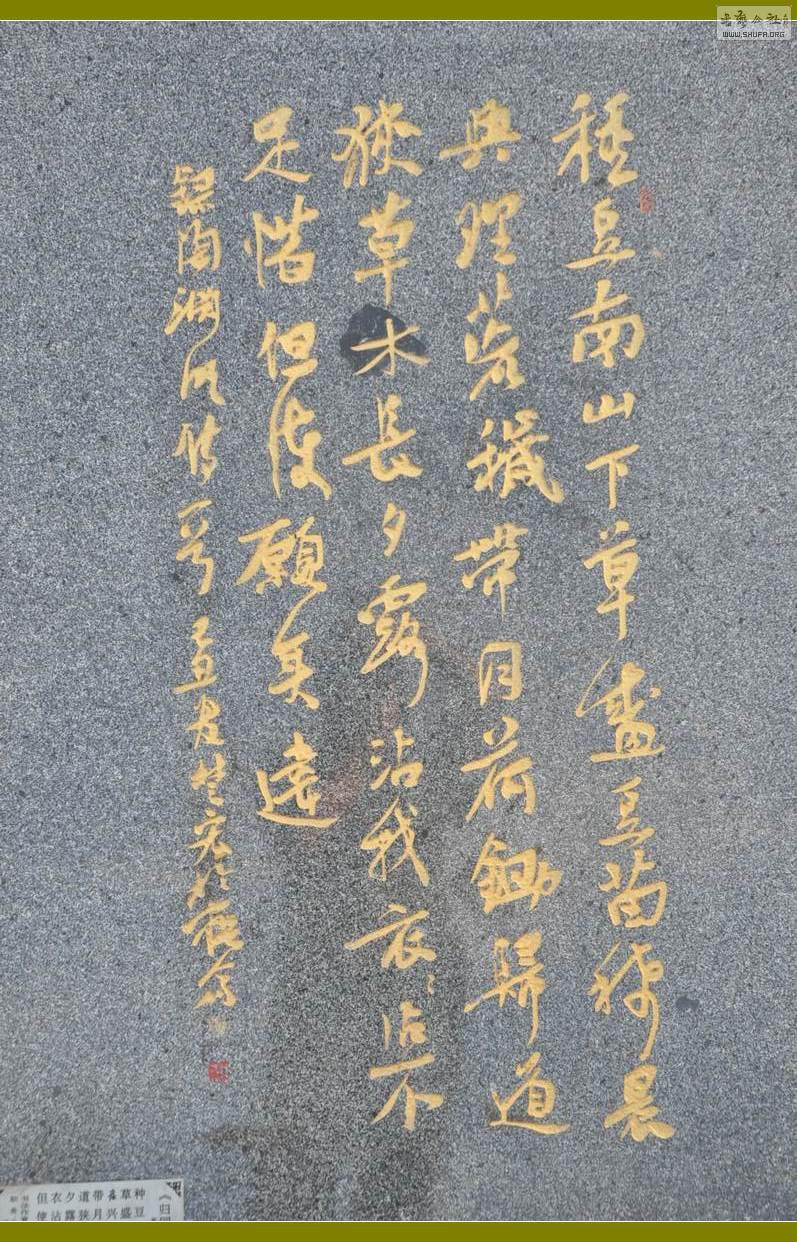 種豆南山下草盛豆苗稀晨
興理荒穢帶月荷鋤歸道
狹草木長夕露沾我衣〻沾不
足惜但使願無違
錄陶淵明詩一首
WWW.SHUFA.ORG
《归园
种豆
草盛
晨兴
带月
道狭
夕露
衣沾
但使